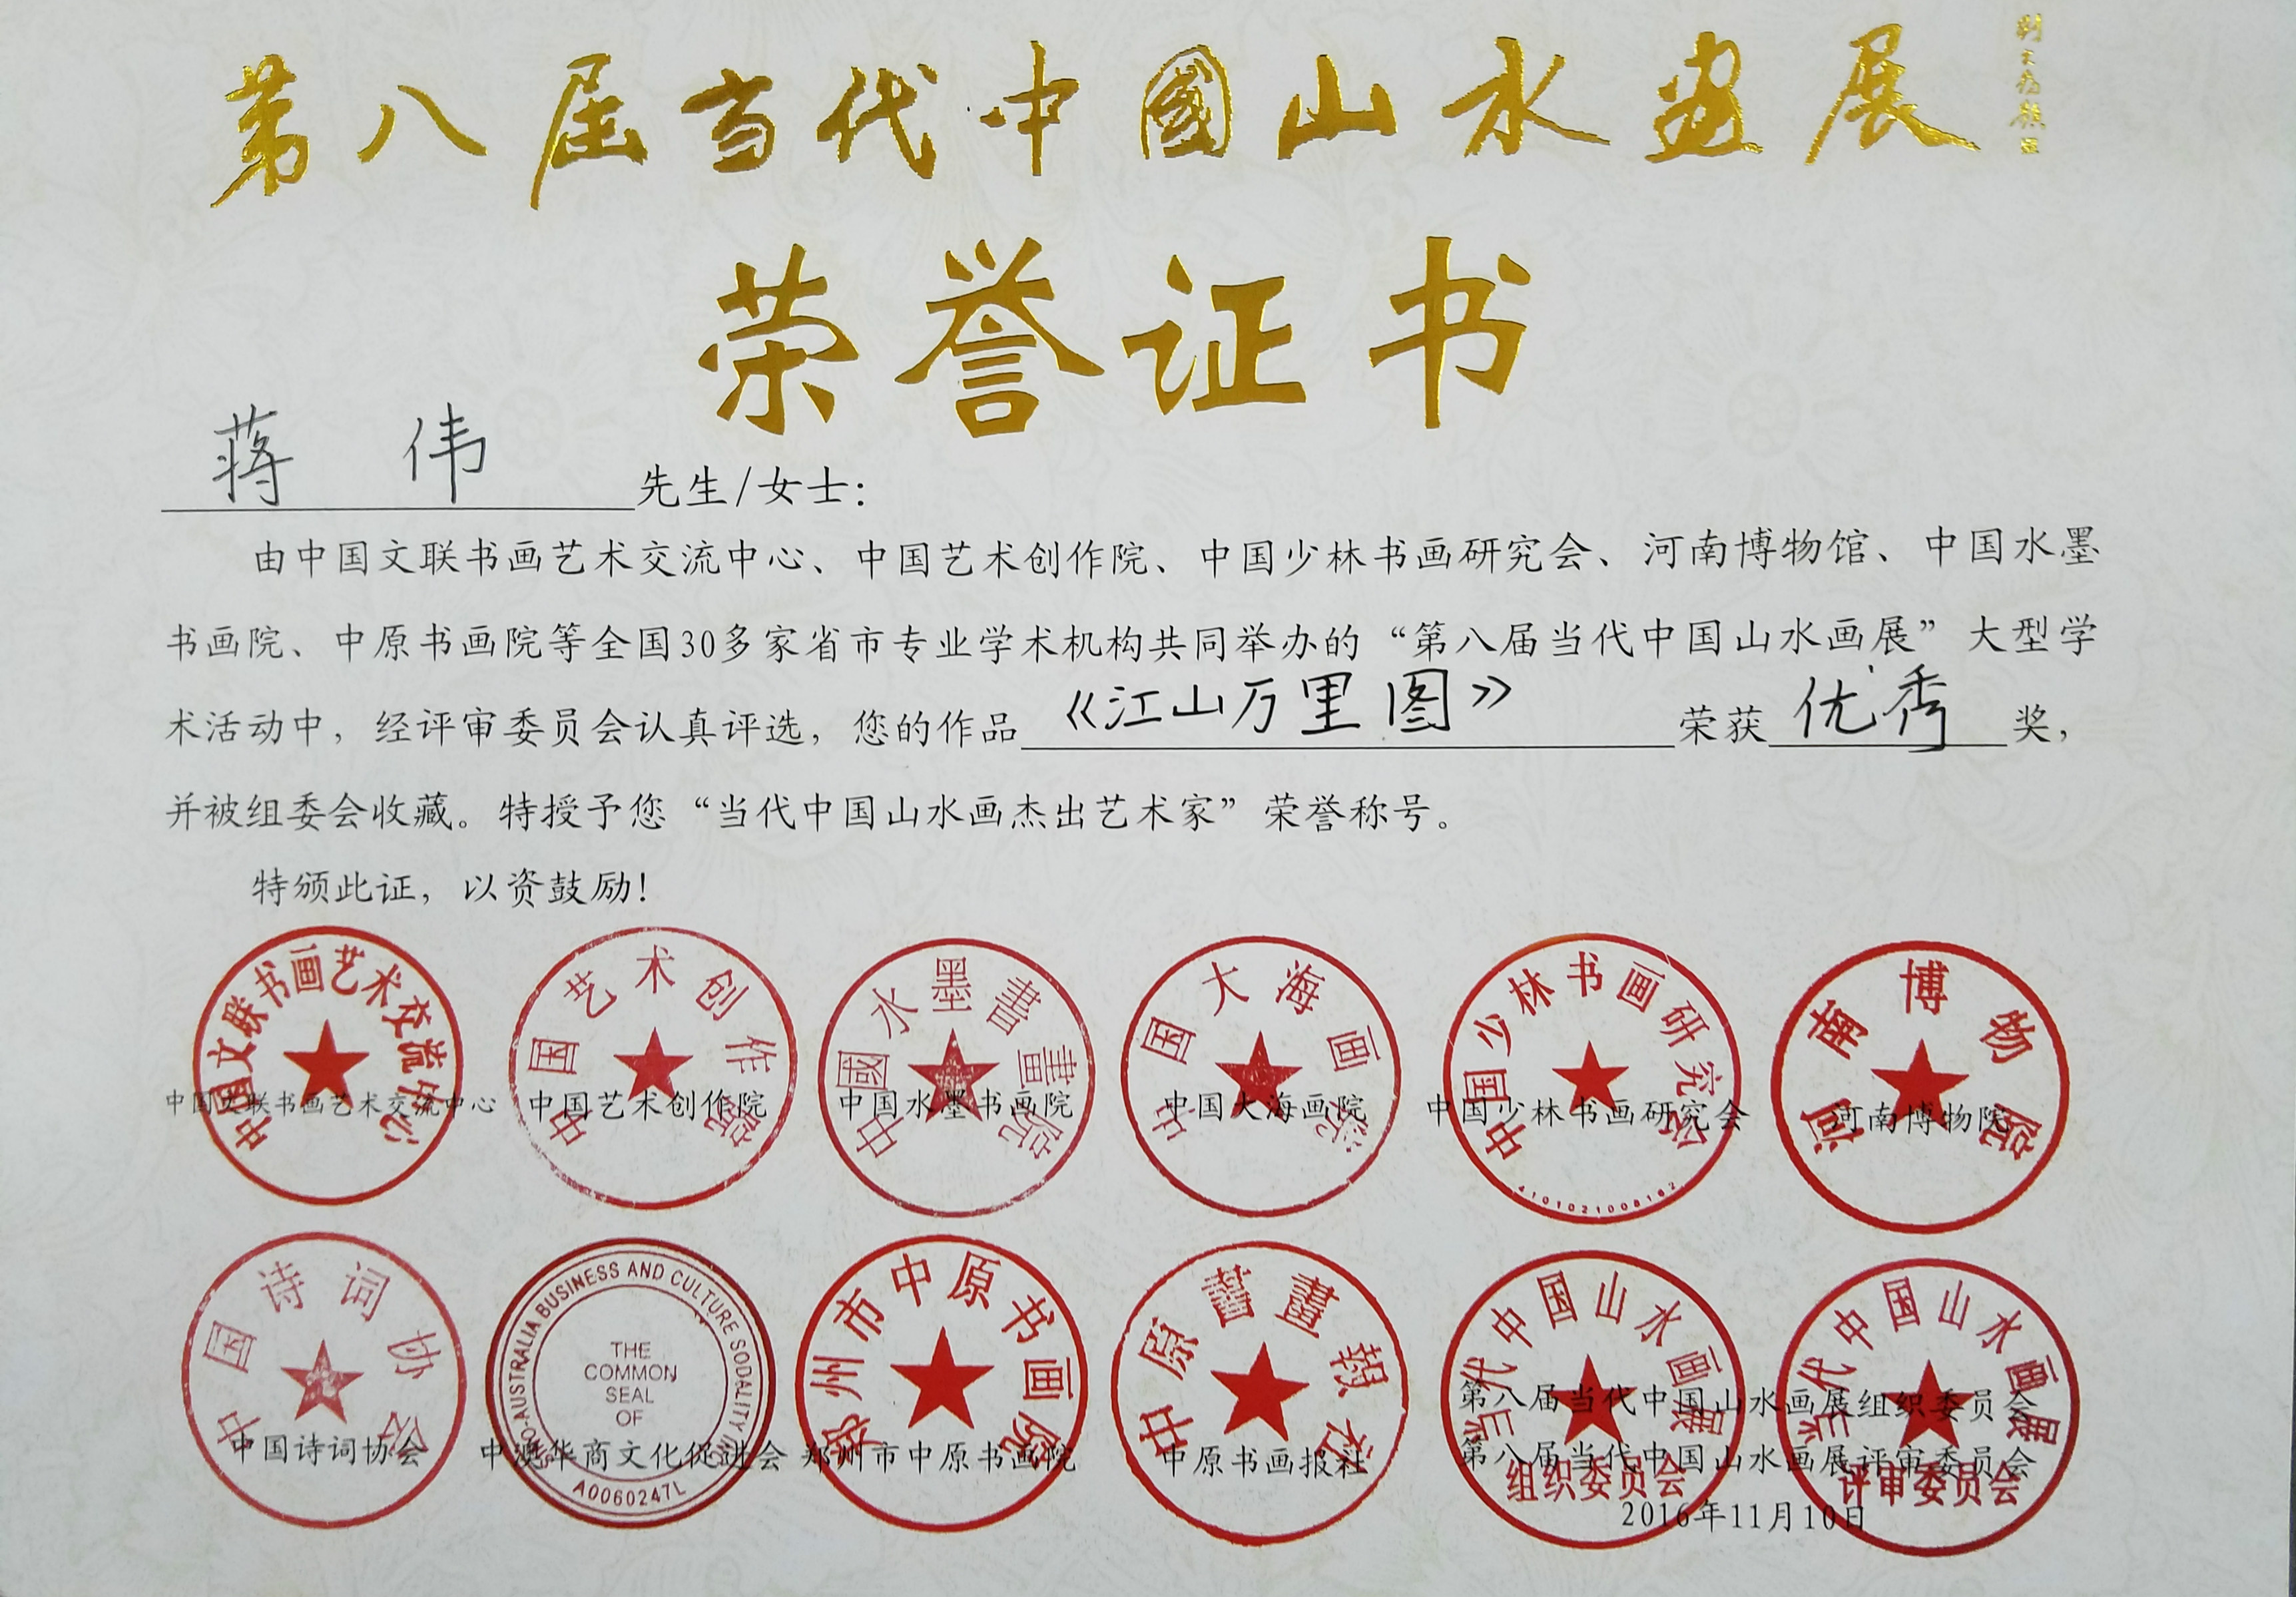 第八届当代中國山水画展
荣誉证书
蒋 伟 先生/女士:
由中国文联书画艺术交流中心、中国艺术创作院、中国少林书画研究会、河南博物馆、中国水墨
书画院、中原书画院等全国30多家省市专业学术机构共同举办的“第八届当代中国山水画展”大型学
术活动中，经评审委员会认真评选，您的作品《江山万里图》荣获优秀奖，
并被组委会收藏。特授予您“当代中国山水画杰出艺术家”荣誉称号。
特颁此证，以资鼓励!
中国文联书画艺术交流中心
中国艺术创作院
中國水墨書畫院
中国大海画院
中国少林书画研究会
4101021008162
河南博物院
中国文联书画艺术交流中心 中国艺术创作院 中国水墨书画院 中国大海画院 中国少林书画研究会 河南博物院
中国诗词协会
SINO-AUSTRALIA BUSINESS AND CULTURE SODALITY INC
THE
COMMON
SEAL
OF
A0060247L
郑州市中原书画院
中原書畫報社
当代中国山水画展
组织委员会
当代中国山水画展
评审委员会
第八届当代中国山水画展组织委员会
中国诗词协会 中澳华商文化促进会 郑州市中原书画院 中原书画报社 第八届当代中国山水画展评审委员会
2016年11月10日